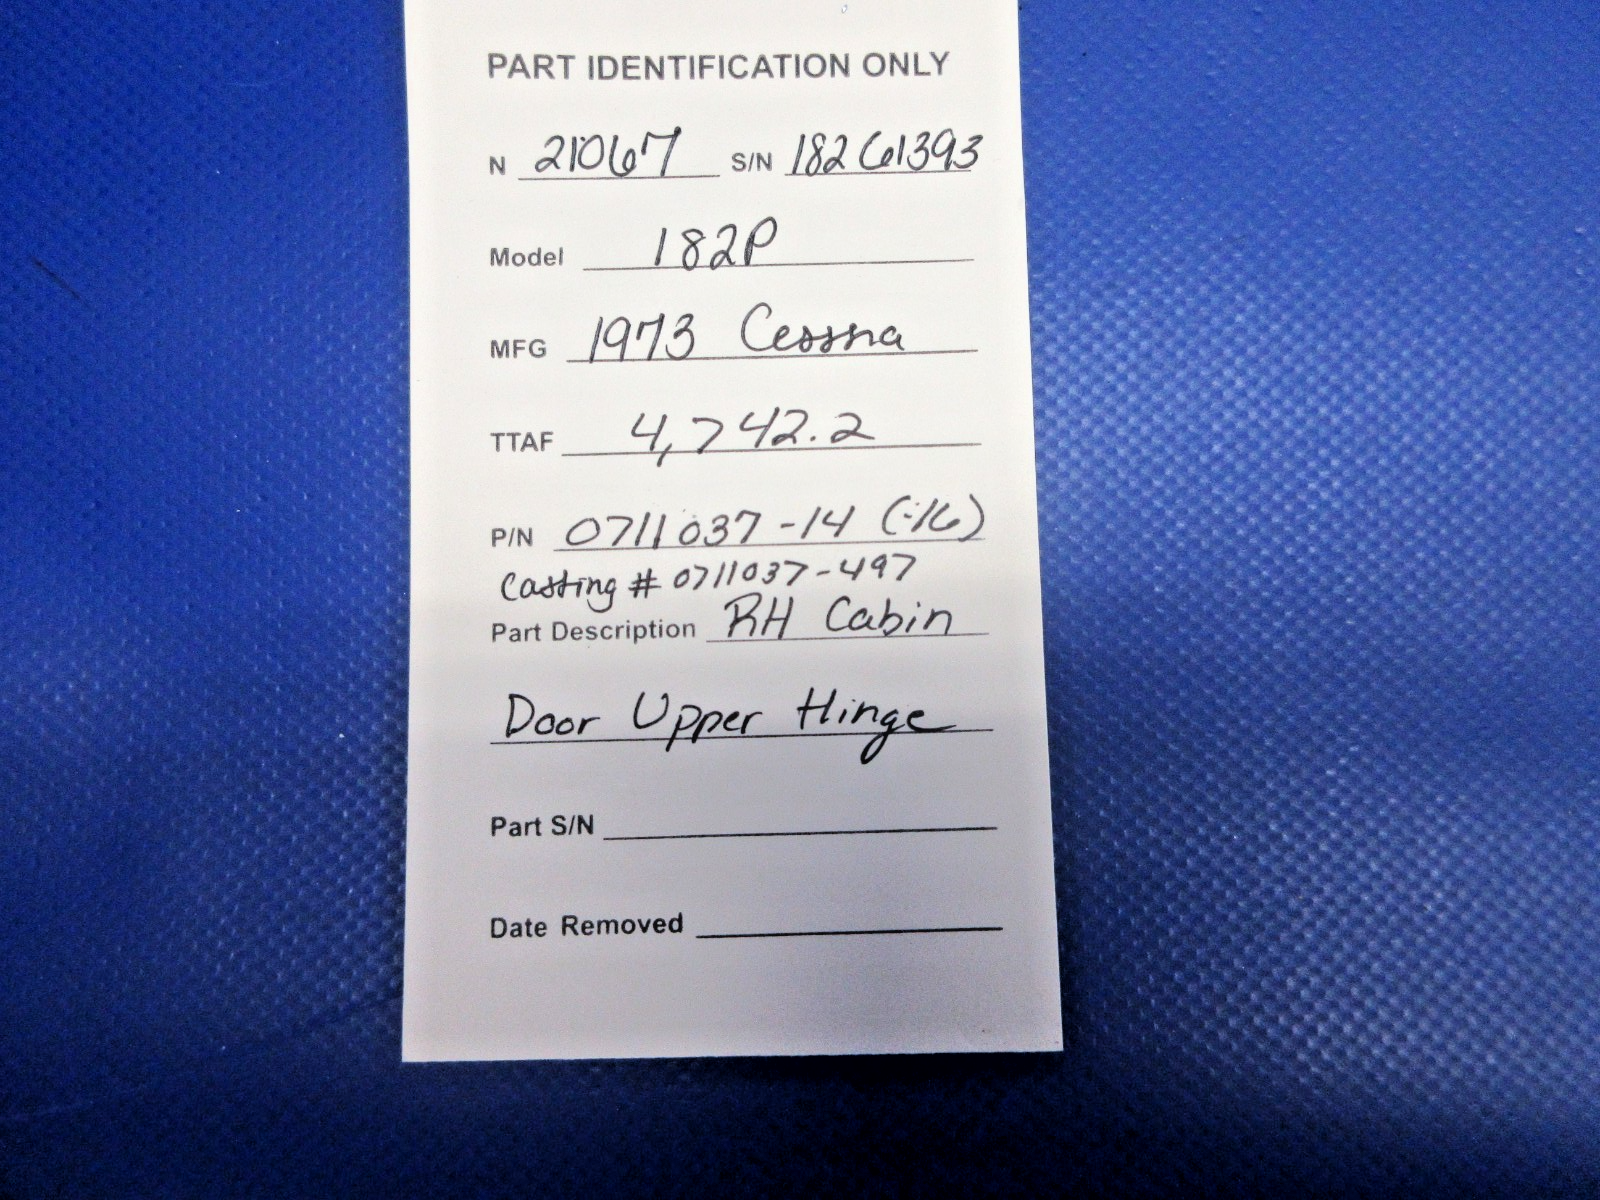 PART IDENTIFICATION ONLY
N 21067 S/N 18261393
Model 182P
MFG 1973 Cessna
TTAF 4,742.2
P/N 0711037-14 (-16)
Casting # 0711037-497
Part Description RH Cabin
Door Upper Hinge
Part S/N
Date Removed